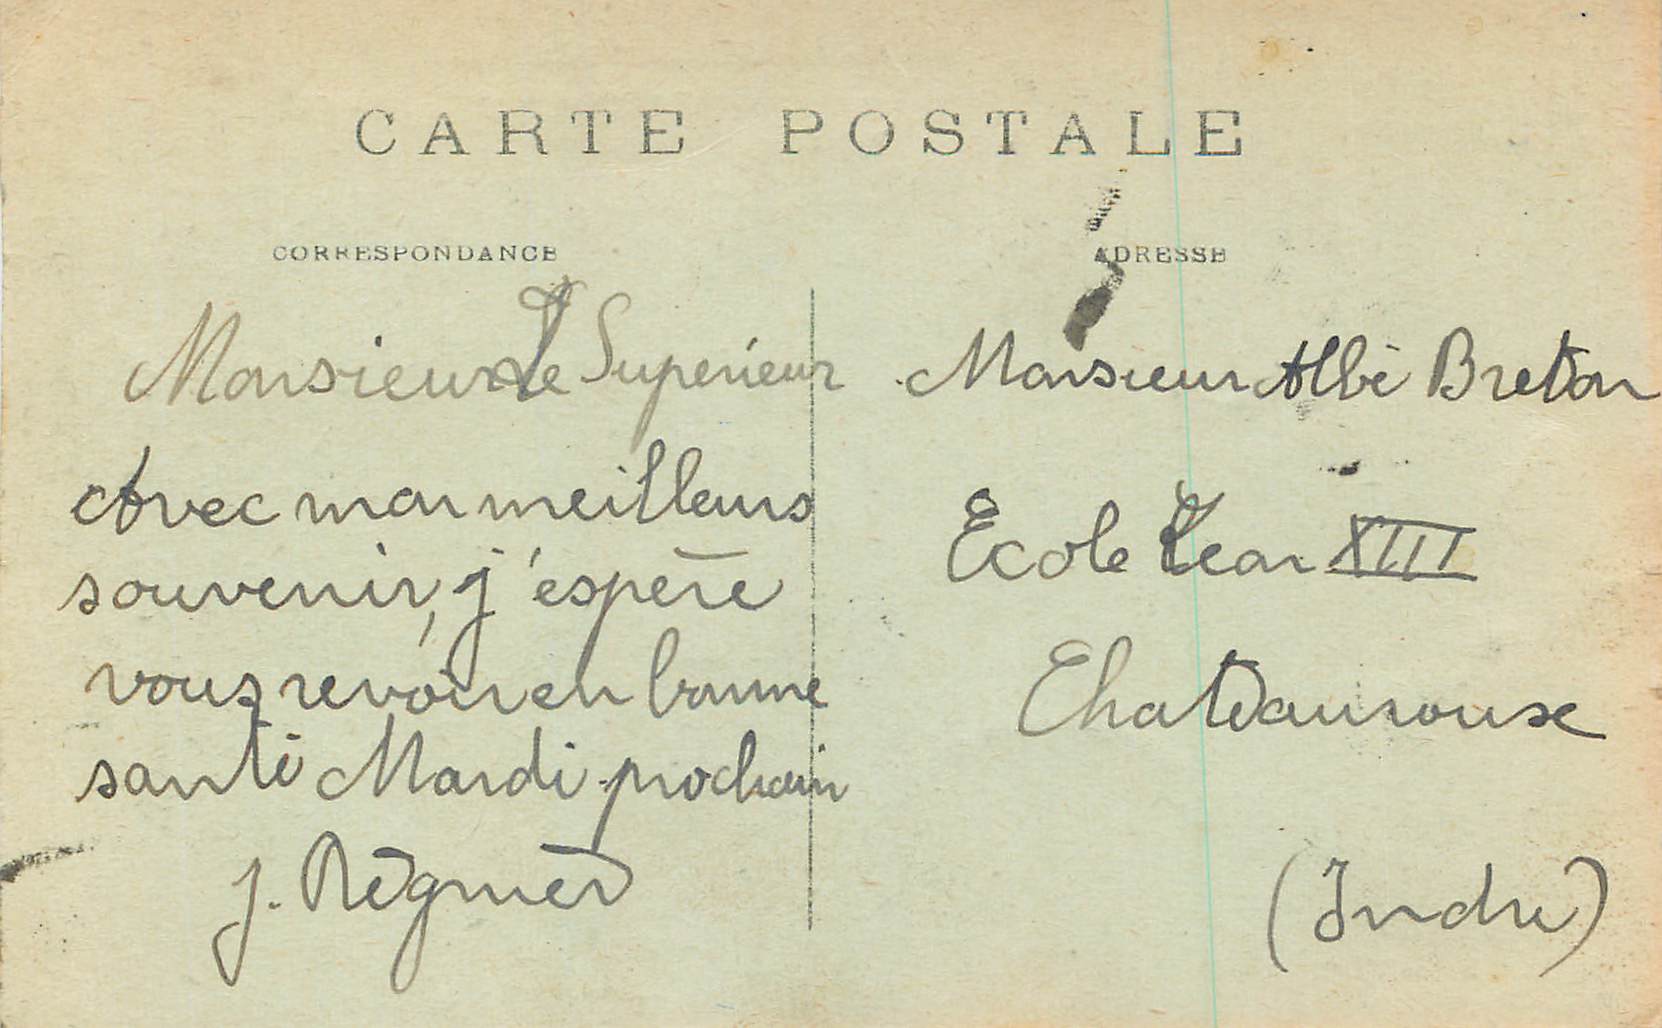 CARTE POSTALE
CORRESPONDANCE
Monsieur Le Superieur
Avec mon meilleurs
souvenir, j'espère
vous revoir en bonne
santé Mardi prochain
J. Régnier
ADRESSE
Monsieur Albé Breton
Ecole Léon XIII
Chateauroux
(Indre)